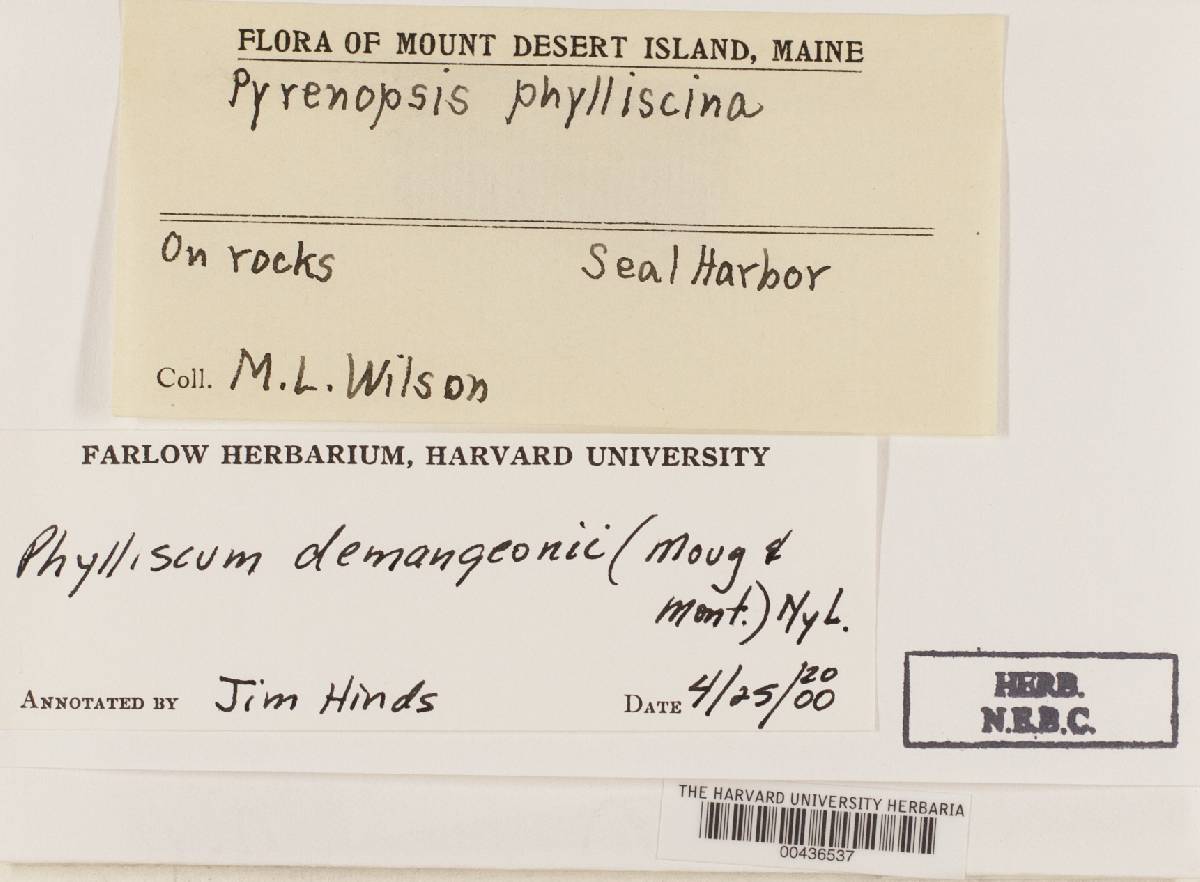 FLORA OF MOUNT DESERT ISLAND, MAINE
Pyrenopsis phylliscina
On rocks Seal Harbor
Coll. M.L. Wilson
FARLOW HERBARIUM, HARVARD UNIVERSITY
Phylliscum demangeonii (Moug &
Mont.) Nyl.
ANNOTATED BY Jim Hinds DATE 4/25/2000
HERB.
N.E.B.C.
THE HARVARD UNIVERSITY HERBARIA
00436537